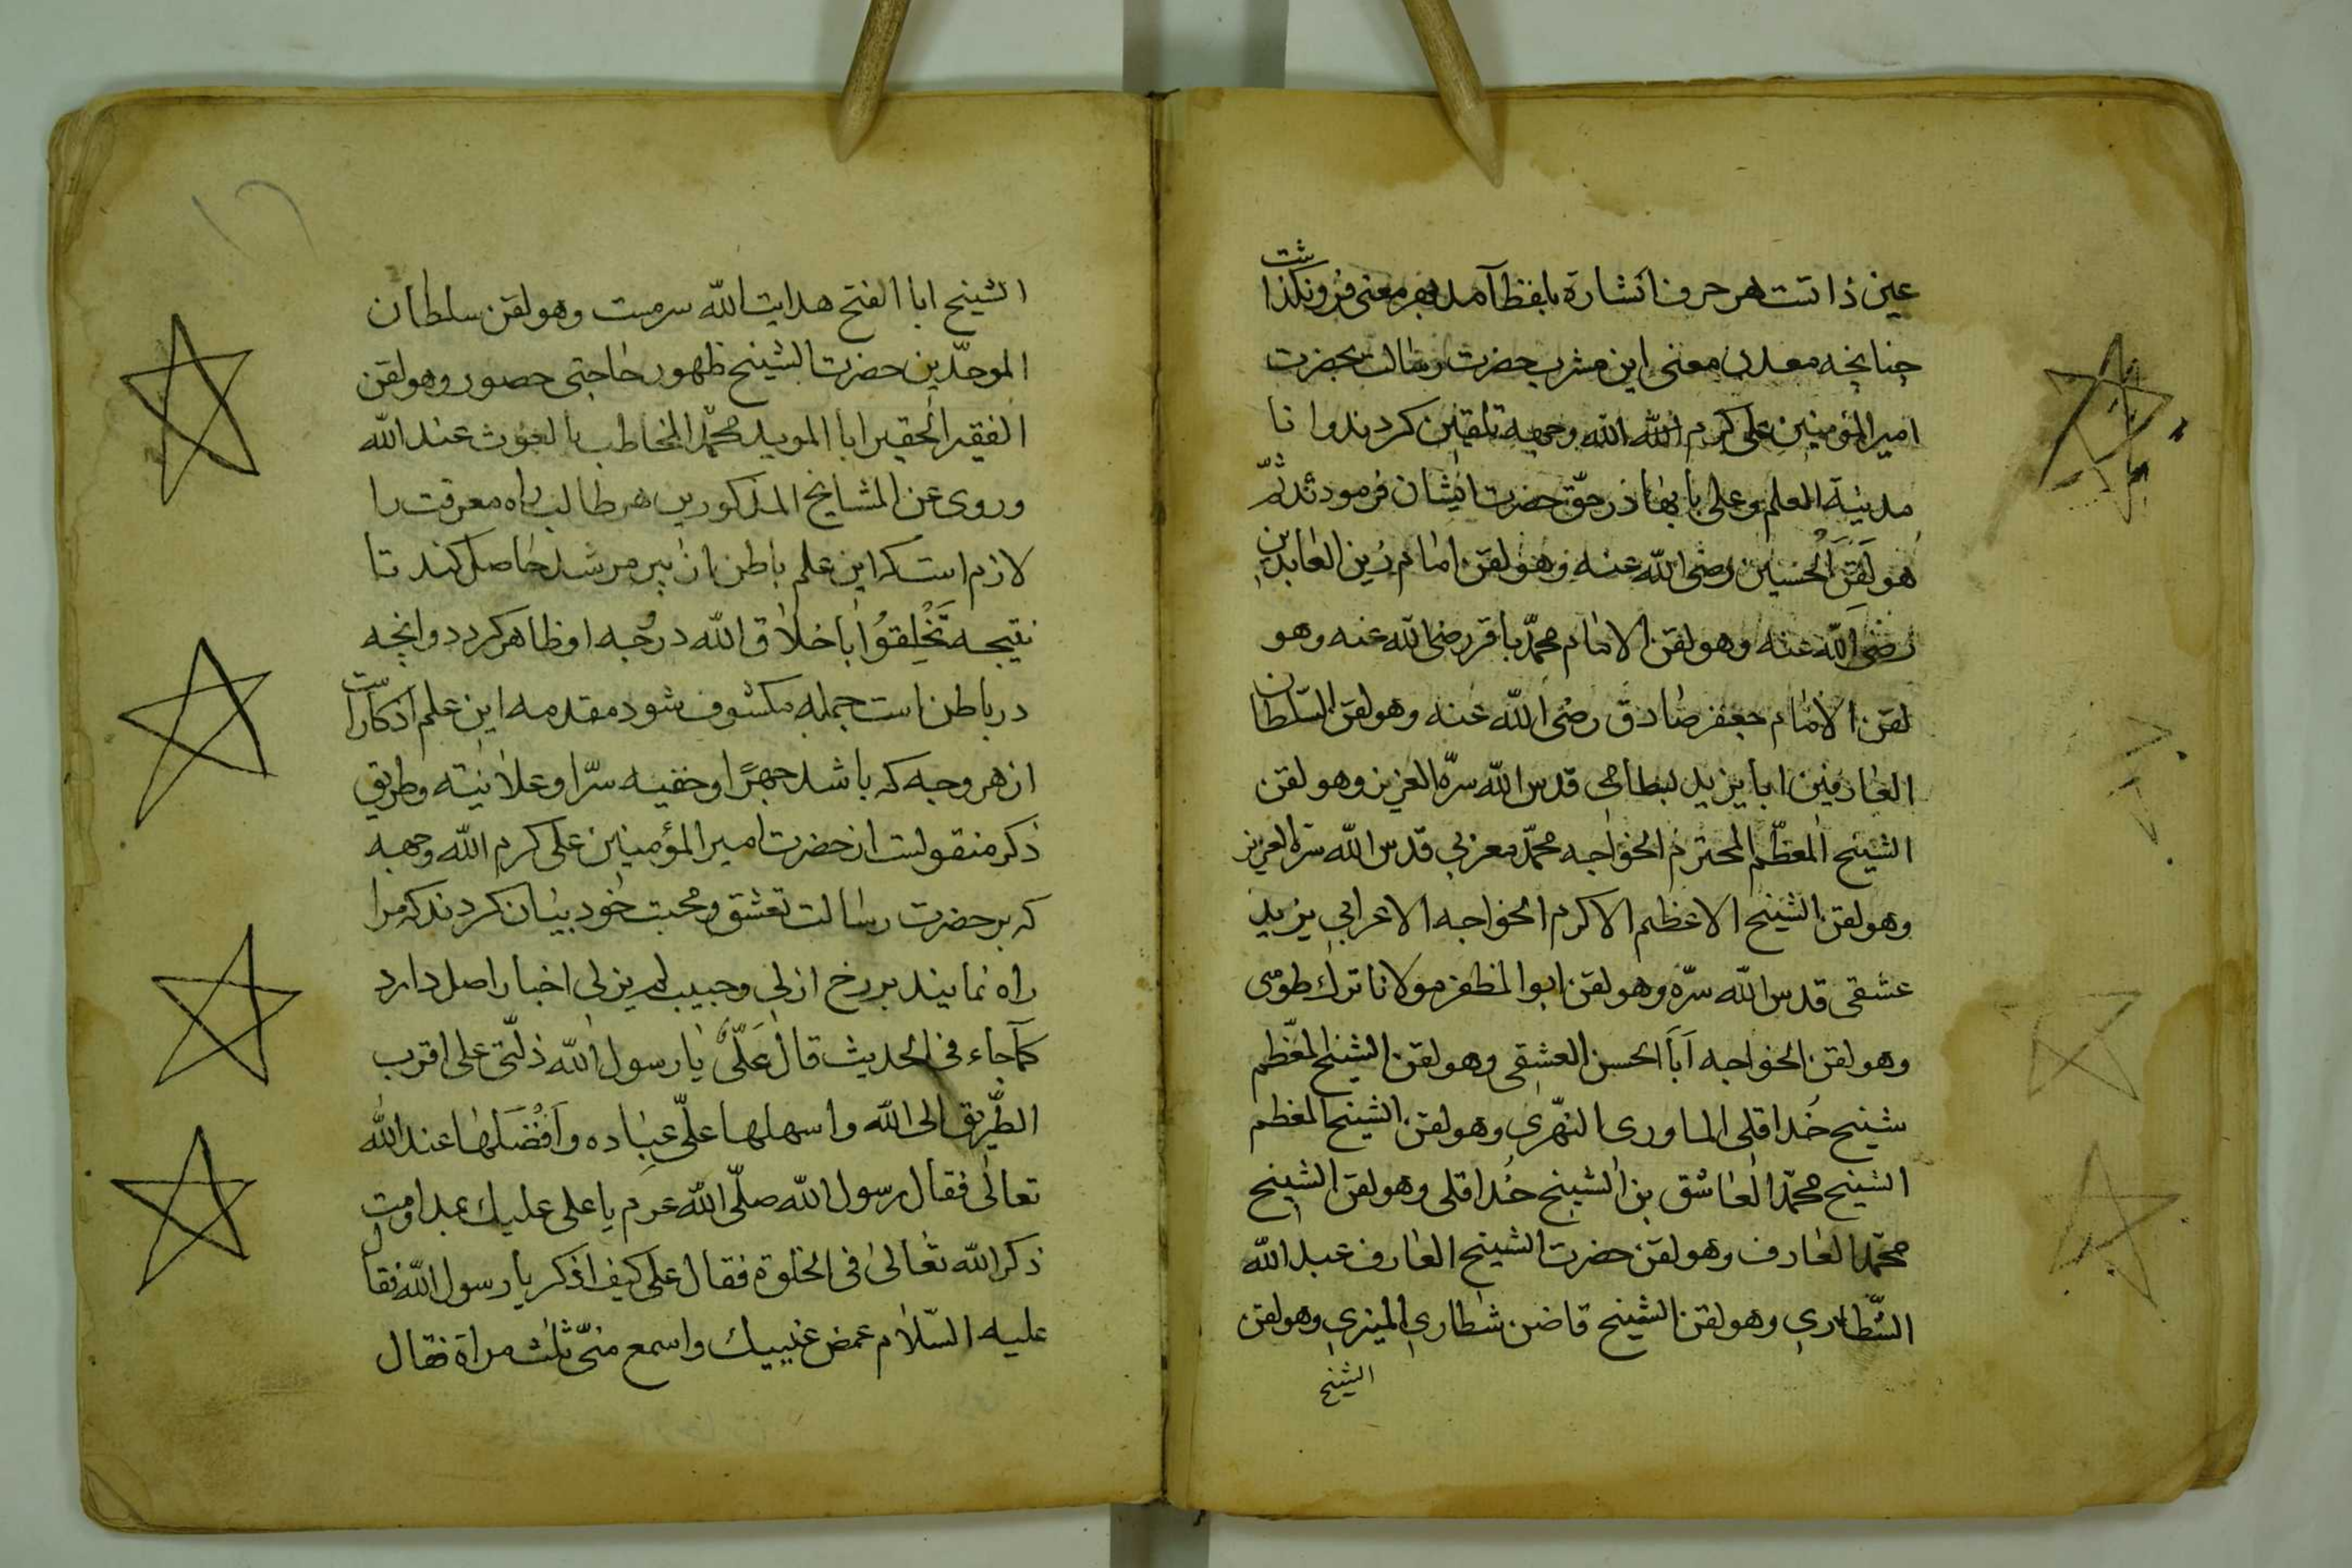 عين ذاتست هر حرف اشارة بلفظ آمد بهر معنى فرو نكذاشت
چنانچه معدن معنى اين مشرب حضرت رسالت بحضرت
امير المؤمنين على كرم الله الله وجهه تلقين كردند وانا
مدينة العلم وعلى بابها در حق حضرت ايشان فرمودند ثمّ
هو لَقَنَ الْحسين رضى الله عنه وهو لقن امام زين العابدين
رضى الله عنه وهو لقن الامام محمّد باقر رضى الله عنه وهو
لقن الامام جعفر صادق رضى الله عنه وهو لقن السّلطان
العارفين ابا يزيد بسطامى قدس الله سرّه العزيز وهو لقن
الشيخ المعظّم المحترم الخواجه محمّد مغربي قدّس الله سرّه العزيز
وهو لقن الشيخ الاعظم الاكرم الخواجه الاعرابي يزيد
عشقى قدس الله سرّه وهو لقن ابو المظفر مولانا ترك طوسى
وهو لقن الخواجه اَبَا الحسن العشقى وهو لقن الشيخ المعظم
شيخ خُداقلى الماورى النّهرى وهو لقن الشيخ المعظم
الشيخ محمّد العاشق بن الشيخ خُداقلى وهو لقن الشيخ
محمّد العارف وهو لقن حضرت الشيخ العارف عبد الله
الشّطارى وهو لقن الشيخ قاضن شطارى المنيرى وهو لقن
الشيخ
الشيخ ابا الفتح هدايت الله سرمست وهو لقن سلطان
الموحّدين حضرت الشيخ ظهور حاجتى حصور وهو لقن
الفقير الحقير ابا المويد محمّد المخاطب بالغوث عند الله
وروى عن المشايخ المذكورين هر طالب راه معرفت را
لازم است كه اين علم باطن از پير مرشد حاصل كند تا
نتيجه تَخْلِقُوْا باخلاق الله در وجه او ظاهر كردد وانچه
در باطن است جمله مكشوف شود مقدمه اين علم اذكار است
از هر وجه كه باشد جهرًا وخفيه سرّا وعلانيته وطريق
ذكر منقولست از حضرت امير المؤمنين على كرم الله وجهه
كه بر حضرت رسالت تعشق ومحبت خود بيان كردند كه مرا
راه نمايند بر رخ ازلى وحبيب لم يزلى اخبار اصل دارد
كما جاء فى الحديث قال عَلىٌّ يا رسول الله دلّنى على اقرب
الطّريق الى الله واسهلها على عباده واَفْضَلها عند الله
تعالى فقال رسول الله صلّى الله عرم يا على عليك بمداومت
ذكر الله تعالى فى الخلوة فقال على كيف اذكر يا رسول الله فقال
عليه السّلام غمض عنييك واسمع منّى ثلث مراة فقال